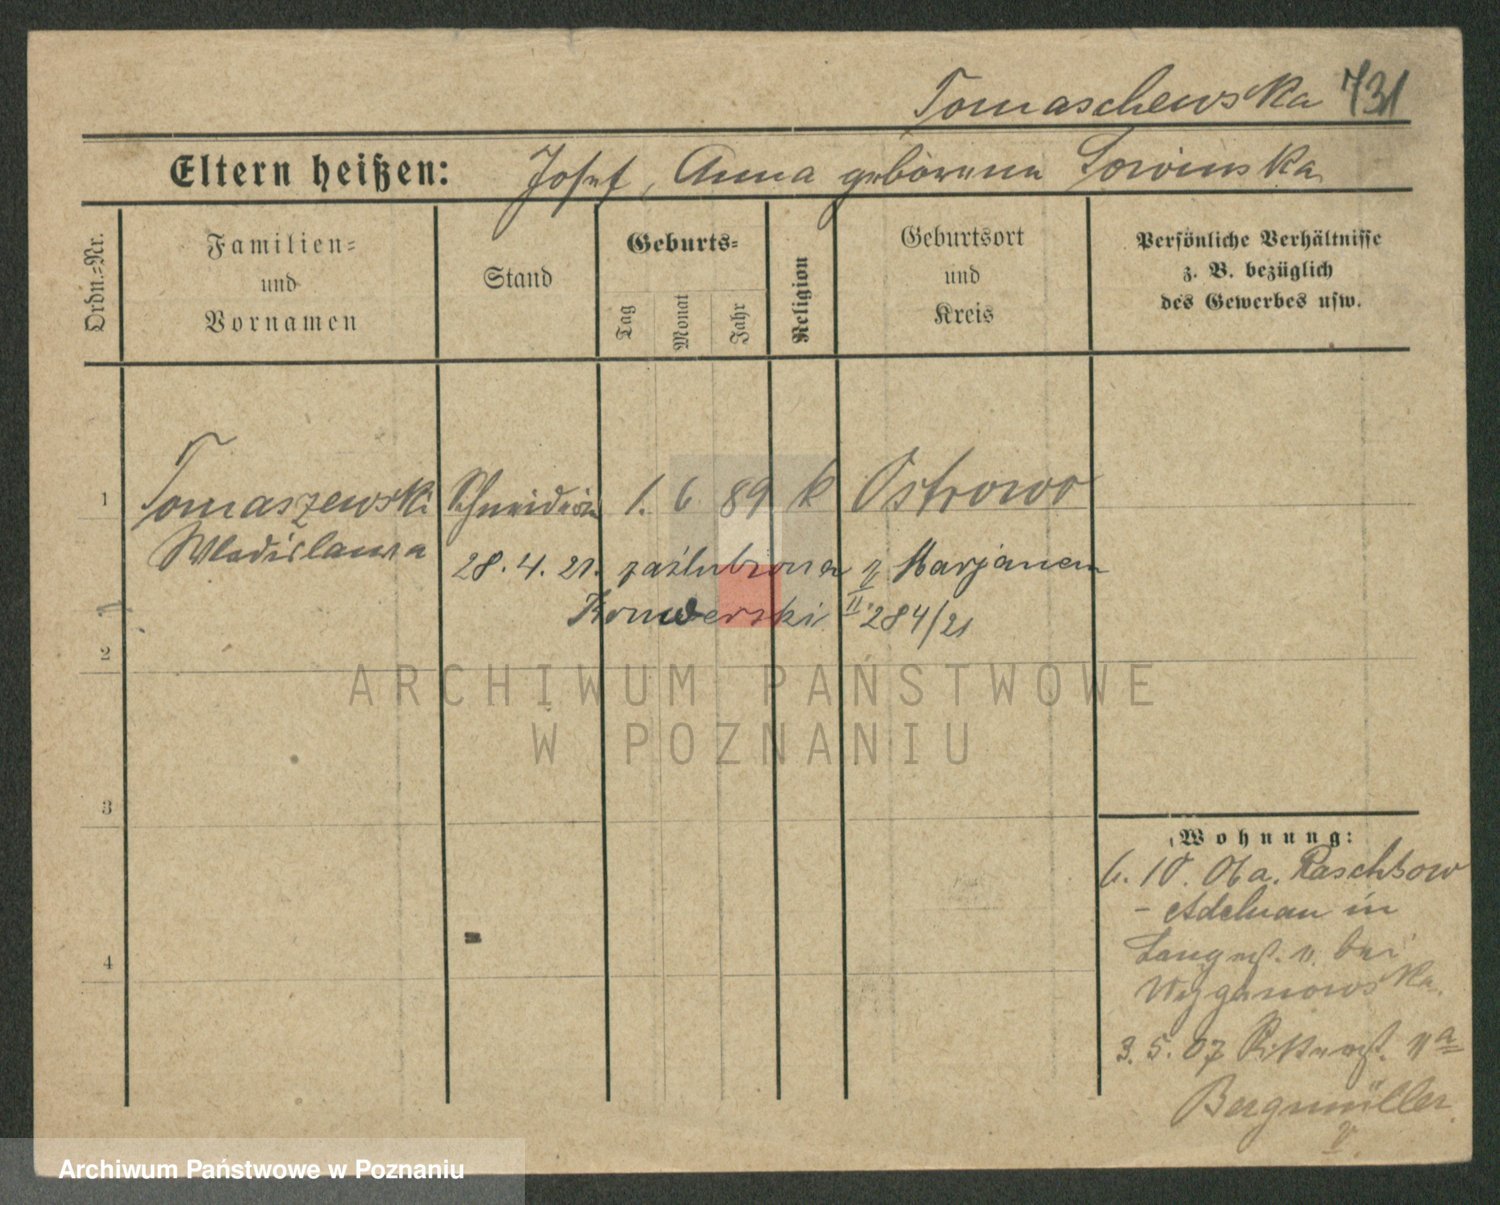 Tomaschewska 731
Eltern heißen: Josef, Anna geborene
Ordn.=Nr.
Familien=
und
Vornamen
Stand
Geburts=
Tag
Monat
Jahr
Religion
Geburtsort
und
Kreis
Persönliche Verhältnisse
z. B. bezüglich
des Gewerbes usw.
1 Tomaszewski Schneiderin 1. 6 89 k Ostrowo
Wladislawa
28. 4. 21. zaślubiona z Marjanem
Konwerski II 284/21
2
3
4
Wohnung:
6. 10. 06 a. Raschkow
- Adelnau in
Langest. 11. bei
Wyganowska.
3. 5. 07 11a
Bergmüller
V
ARCHIWUM PAŃSTWOWE
W POZNANIU
Archiwum Państwowe w Poznaniu